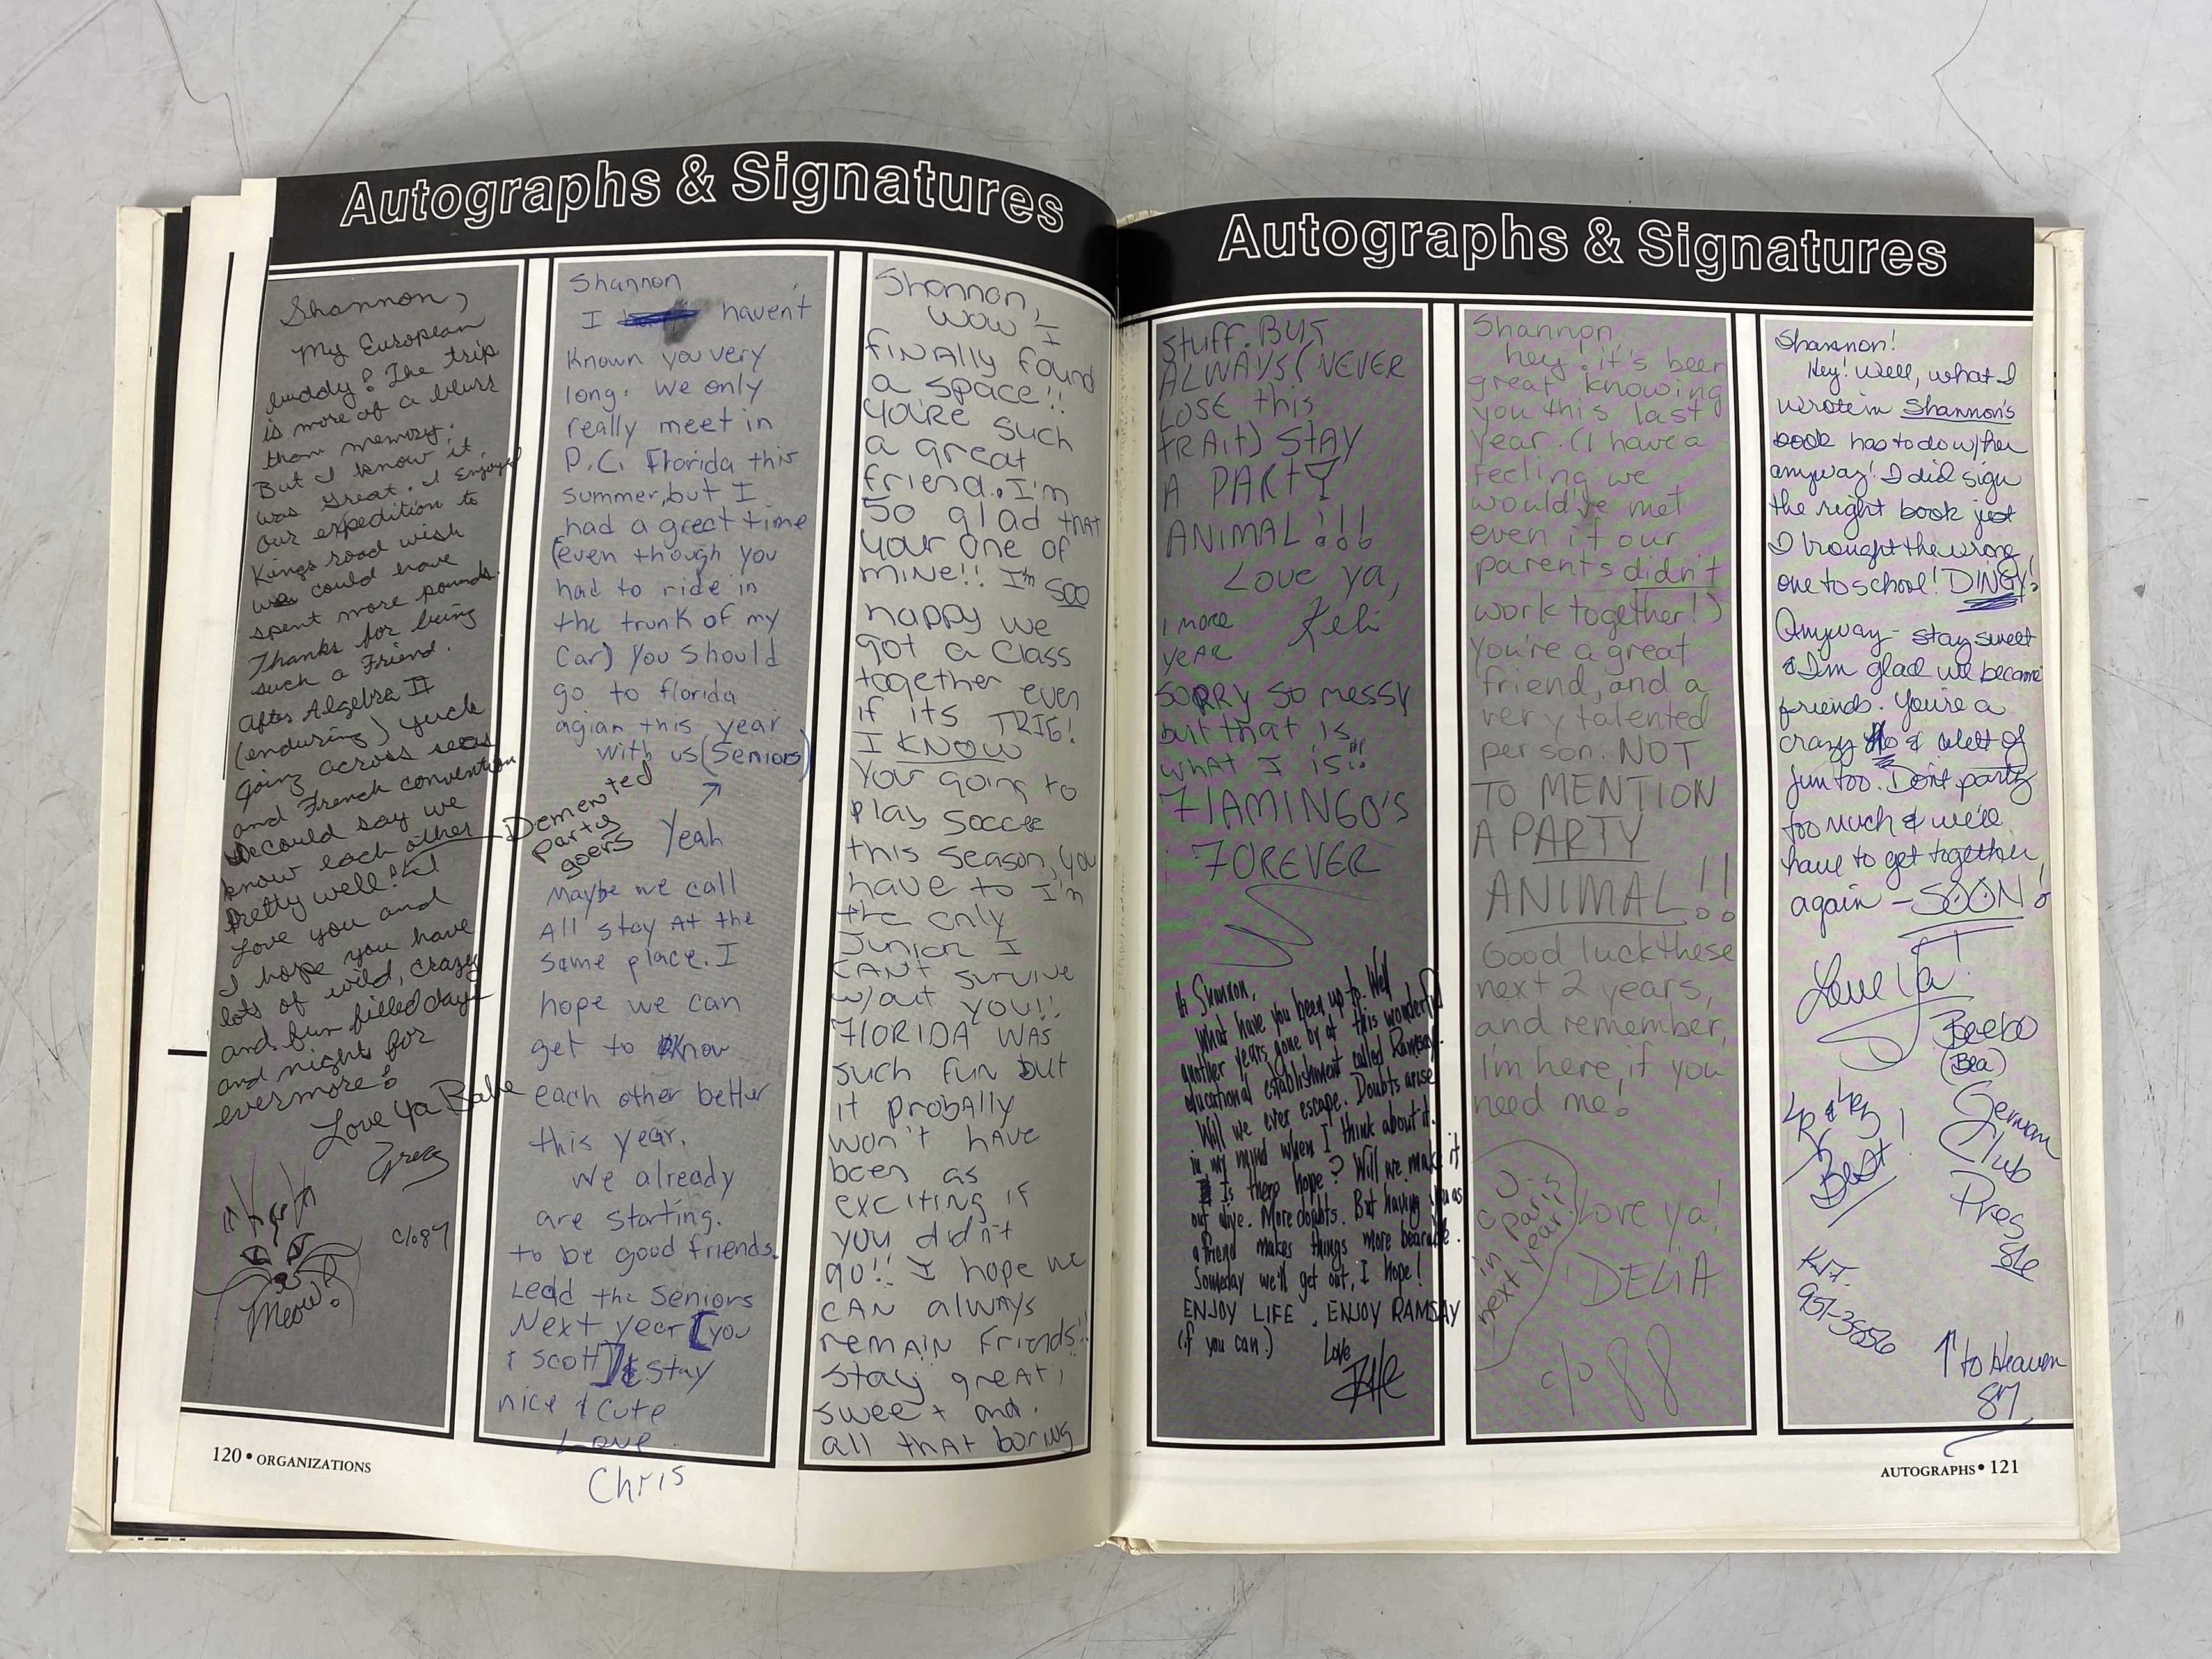 Autographs & Signatures
Shannon,
My European
buddy! The trip
is more of a blurr
than memory.
But I know it
was great. I enjoyed
our expedition to
Kings road wish
we could have
spent more pounds.
Thanks for being
such a Friend.
After Algebra II
(enduring) yuck
going across seas
and French convention
we could say we
know each other
pretty well!
Love you and
I hope you have
lots of wild, crazy
and fun filled days
and nights for
evermore!
Love Ya Babe
Greg
c/o 87
Meow!
Demented
party
goers
Shannon
I haven't
known you very
long. We only
really meet in
P.C. Florida this
summer, but I
had a great time
(even though you
had to ride in
the trunk of my
Car) You should
go to florida
agian this year
with us (Seniors)
Yeah
Maybe we call
All stay At the
same place. I
hope we can
get to know
each other better
this year.
We already
are starting.
to be good friends.
Lead the Seniors
Next year [you
& scott] & Stay
nice & Cute
Love
Chris
Shannon,
WOW I
FINALLY found
a space!!
You're such
a great
friend. I'm
so glad that
your one of
MINE!! I'm soo
happy we
got a Class
together even
if its TRIG!
I KNOW
Your going to
play soccer
this season, you
have to I'm
the only
Junior I
CAN'T survive
w/out you!!
FlORIDA WAS
such fun but
it probAlly
won't hAve
been as
exciting if
you didn't
go!! I hope we
CAN always
remAIN Friends!!
stay greAt,
sweet and
all thAt boring
120 • ORGANIZATIONS
Autographs & Signatures
stuff. BUT
ALWAYS (NEVER
LOSE this
TRAit) STAY
A PARTY
ANIMAL!!!
Love ya,
Keli
1 more
yeAr
SORRY SO messy
but that is
what I is!!
FlAMINGO'S
FOREVER
Hi Shannon,
What have you been up to. Well
another years gone by at this wonderful
educational establishment called Ramsay.
Will we ever escape. Doubts arise
in my mind when I think about it.
Is there hope? Will we make it
out alive. More doubts. But having you as
a friend makes things more bearable.
Someday we'll get out, I hope!
ENJOY LIFE, ENJOY RAMSAY
(if you can.)
Love
Shannon,
hey, it's been
great knowing
you this last
year. (I have a
feeling we
would've met
even if our
parents didn't
work together!)
You're a great
friend, and a
very talented
person. NOT
TO MENTION
A PARTY
ANIMAL!!
Good luck these
next 2 years,
and remember,
I'm here, if you
need me!
in paris
next year!
Love ya!
DELIA
c/o 88
Shannon!
Hey! Well, what I
wrote in Shannon's
book has to do w/her
anyway! I did sign
the right book just
I brought the wrong
one to school! DINGY!
Anyway - stay sweet
& I'm glad we became
friends. You're a
crazy & alott of
fun too. Don't party
too much & we'll
have to get together
again - SOON!
Love Ya!
Beebo
(Bea)
German
Club
Pres
Best!
KIT.
951-3856
↑ to Heaven
87
AUTOGRAPHS • 121